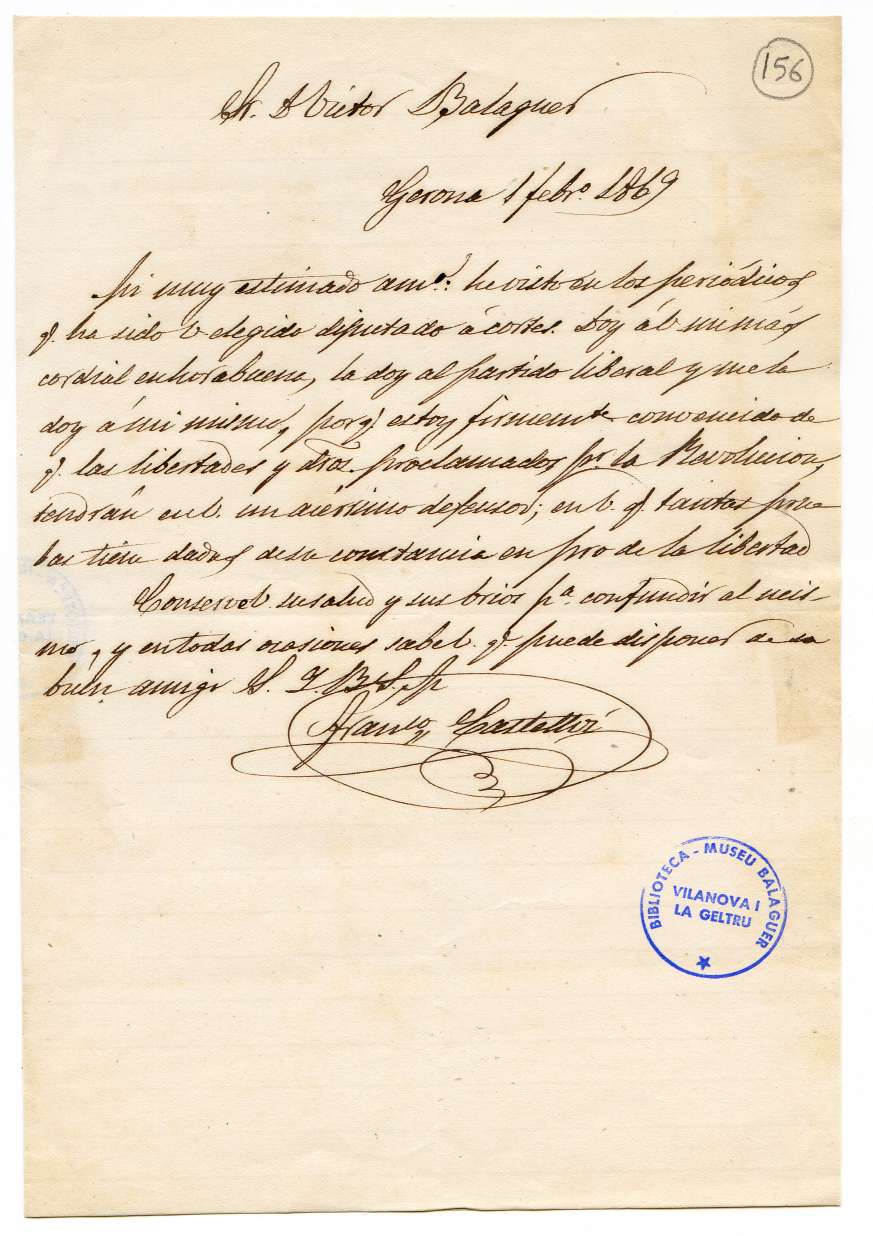 156
Sr. D Víctor Balaguer
Gerona 1 febro. 1869
Mi muy estimado amo.: he visto en los periódicos
q. ha sido V elegido diputado á cortes. Doy á V. mi más
cordial enhorabuena, la doy al partido liberal y me la
doy á mi mismo, porq. estoy firmemte. convencido de
q. las libertades y dros. proclamados pr. la Revolucion,
tendrán en V. un acérrimo defensor; en V. q. tantas prue
bas tiene dadas de su constancia en pro de la libertad
Conserve V. su salud y sus brios pa. confundir al neis-
mo, y en todas ocasiones sabe V. q. puede disponer de su
buen amigo S. S. Q. B. S. M.
Franco. Castellví
BIBLIOTECA - MUSEU BALAGUER
VILANOVA I
LA GELTRU